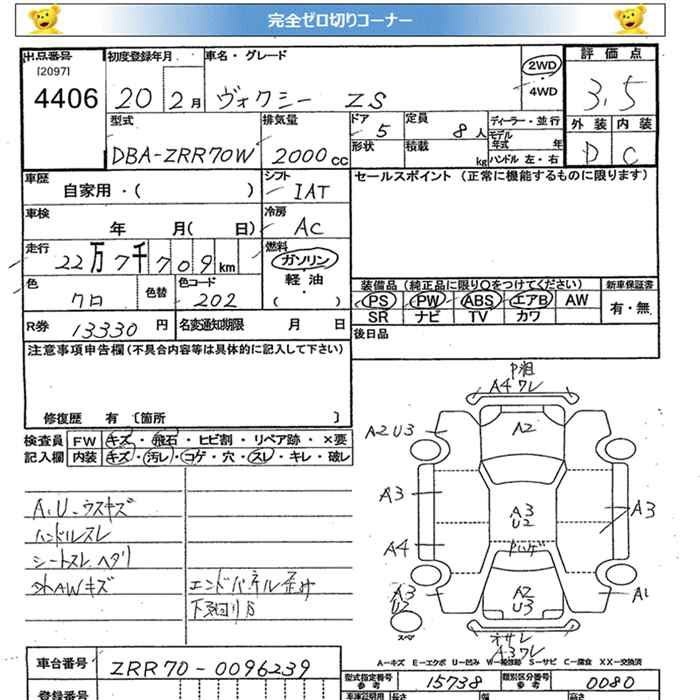 完全ゼロ切りコーナー
出品番号 初度登録年月 車名・グレード 評価点
[2097] 2WD
4406 20 2月 ヴォクシー ZS 4WD 3.5
型式 排気量 ドア 5 定員 8人 ディーラー・並行 外装 内装
モデル年式 年
DBA-ZRR70W 2000cc 形状 積載 kg ハンドル 左・右 D C
車歴 シフト セールスポイント (正常に機能するものに限ります)
自家用・( ) IAT
車検 冷房
年 月( 日) AC
走行 燃料
22万7千709km ガソリン
軽油
( )
色 色替 色コード 装備品 (純正品に限り○をつけてください) 新車保証書
クロ 202 PS PW ABS エアB AW 有・無
SR ナビ TV カワ
R券 13330円 名変通知期限 月 日 後日品
注意事項申告欄(不具合内容等は具体的に記入して下さい)
修復歴 有 〔箇所 〕
検査員 FW キズ・飛石・ヒビ割・リペア跡・×要
記入欄 内装 キズ・汚レ・コゲ・穴・スレ・キレ・破レ
A.U.ウスキズ
ハンドルスレ
シートスレ ヘタリ
外AWキズ
エンドパネル歪み
下回りS
A4 ワレ
A2 U3
A2
A3
A3 U2
A3
A4
ドハゲ
A3 U2
A2 U3
A1
スペア
オサレ
A3ワレ
A−キズ E−エクボ U−凹み W−補修跡 S−サビ C−腐食 XX−交換済
車台番号 ZRR70-0096239
型式指定番号 参考 15738 類別区分番号 参考 0080
登録番号 車庫証明用 参考 長さ 幅 高さ